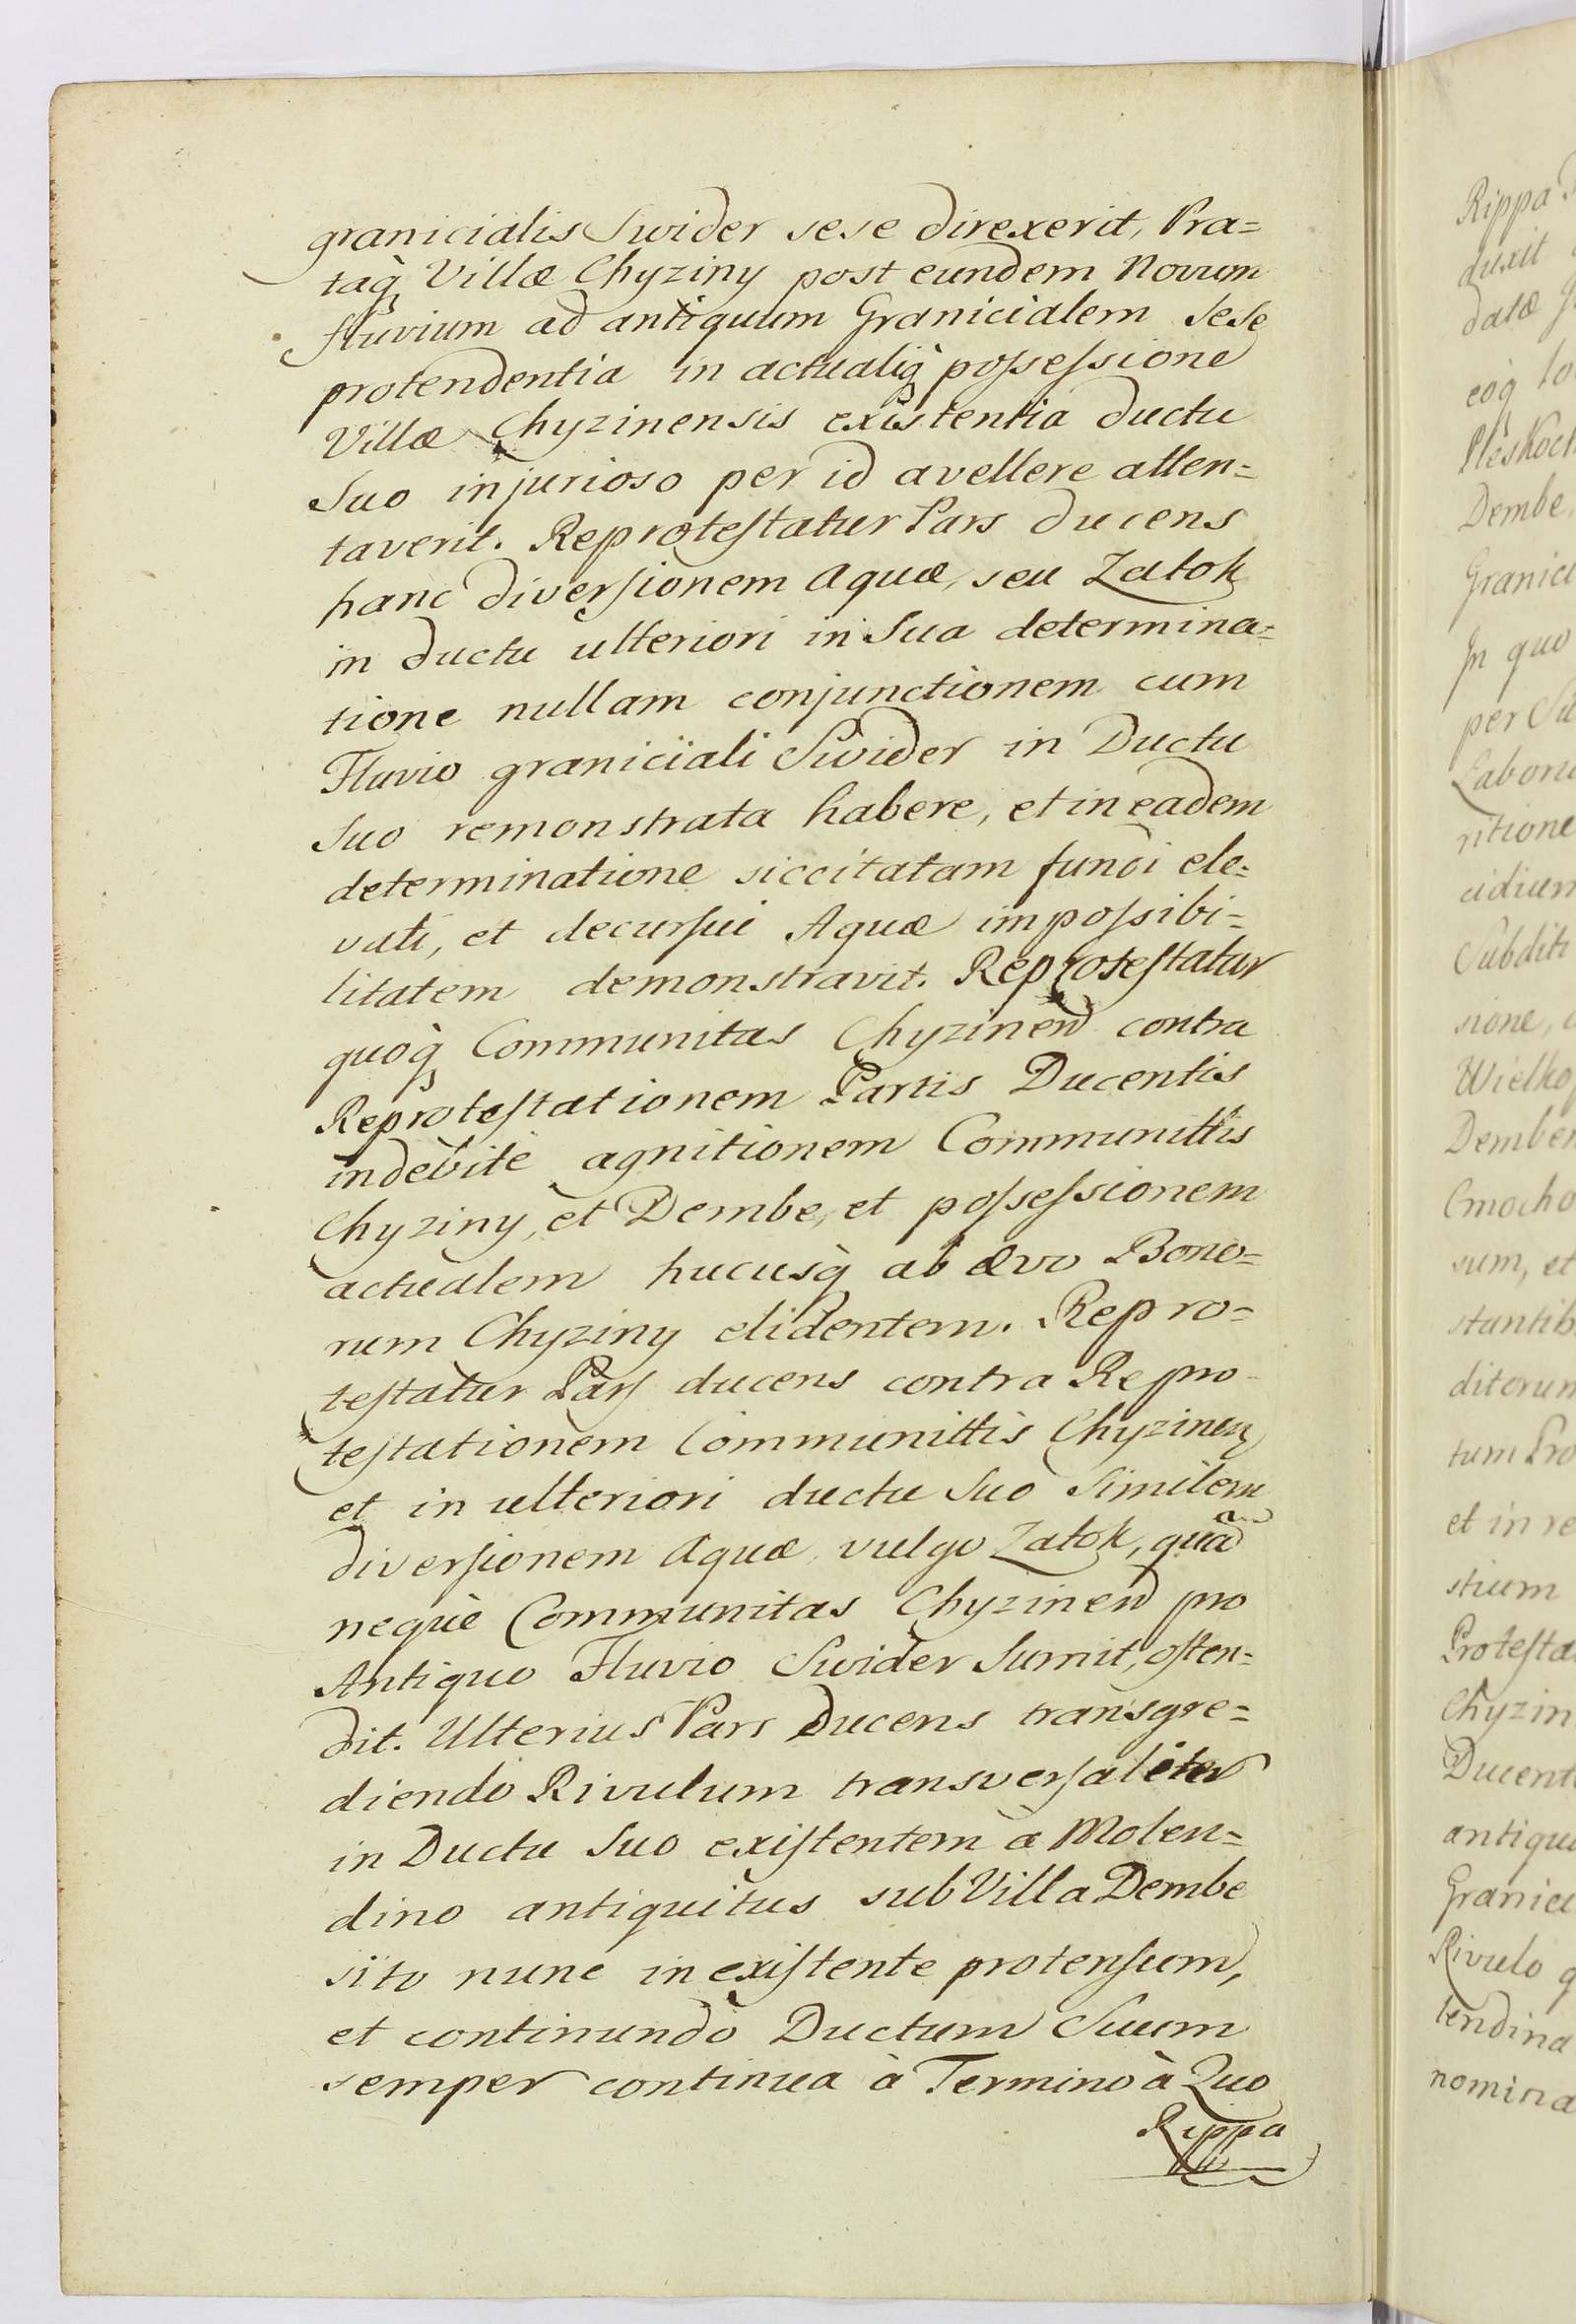 granicialis Swider sese direxerit, Pra=
taq̀ Villæ Chyziny post eundem Novum
fluvium ad antiquum Granicialem Sese
protendentia in actualiq̀ poſseſsione
Villæ Chyzinensis existentia ductu
Suo injurioso per id avellere atten=
taverit. Reproteſtatur Pars ducens
hanc diverſionem Aquæ, seu Zatok
in ductu ulteriori in Sua determina=
tione nullam conjunctionem cum
Fluvio graniciali Swider in Ductu
Suo remonstrata habere, et in eadem
determinatione siccitatam fundi ele=
vati, et decurſui Aquæ impoſsibi=
litatem demonstravit. Reproteſtatur
quoq̀ Communitas Chyzinen contra
Reproteſtationem Partis Ducentis
indebitè agnitionem Communittis
Chyziny, et Dembe, et poſseſsionem
actualem hucusq̀ ab ævo Bono=
rum Chyziny elidentem. Repro=
teſtatur Parſ ducens contra Repro-
teſtationem Communittis Chyzinen
et in ulteriori ductu Suo Similem
diverſionem Aquæ vulgo Zatok, quã
nequè Communitas Chyzinen pro
Antiquo Fluvio Swider Sumit, oſten=
dit. Ulterius Pars Ducens transgre=
diendo Rivulum transverſaliter
in Ductu Suo exiſtentem à Molen=
dino antiquitus sub Villa Dembe
sito nunc inexiſtente protenſum,
et continundo Ductum Suum
semper continua à Termino à Quo
Rippa
Rippa
duxit
datæ
eòq̀
Pleskoch
Dembe
Granici
In quo
per
Labor
ritione
cidium
Subditi
sione,
Wielko
Dember
Cmocho
sum, et
stantib
ditorum
tum Pro
et in re
stium
Proteſta
Chyzin
Ducent
antiqu
Granici
Rivulo q
tendina
nomina